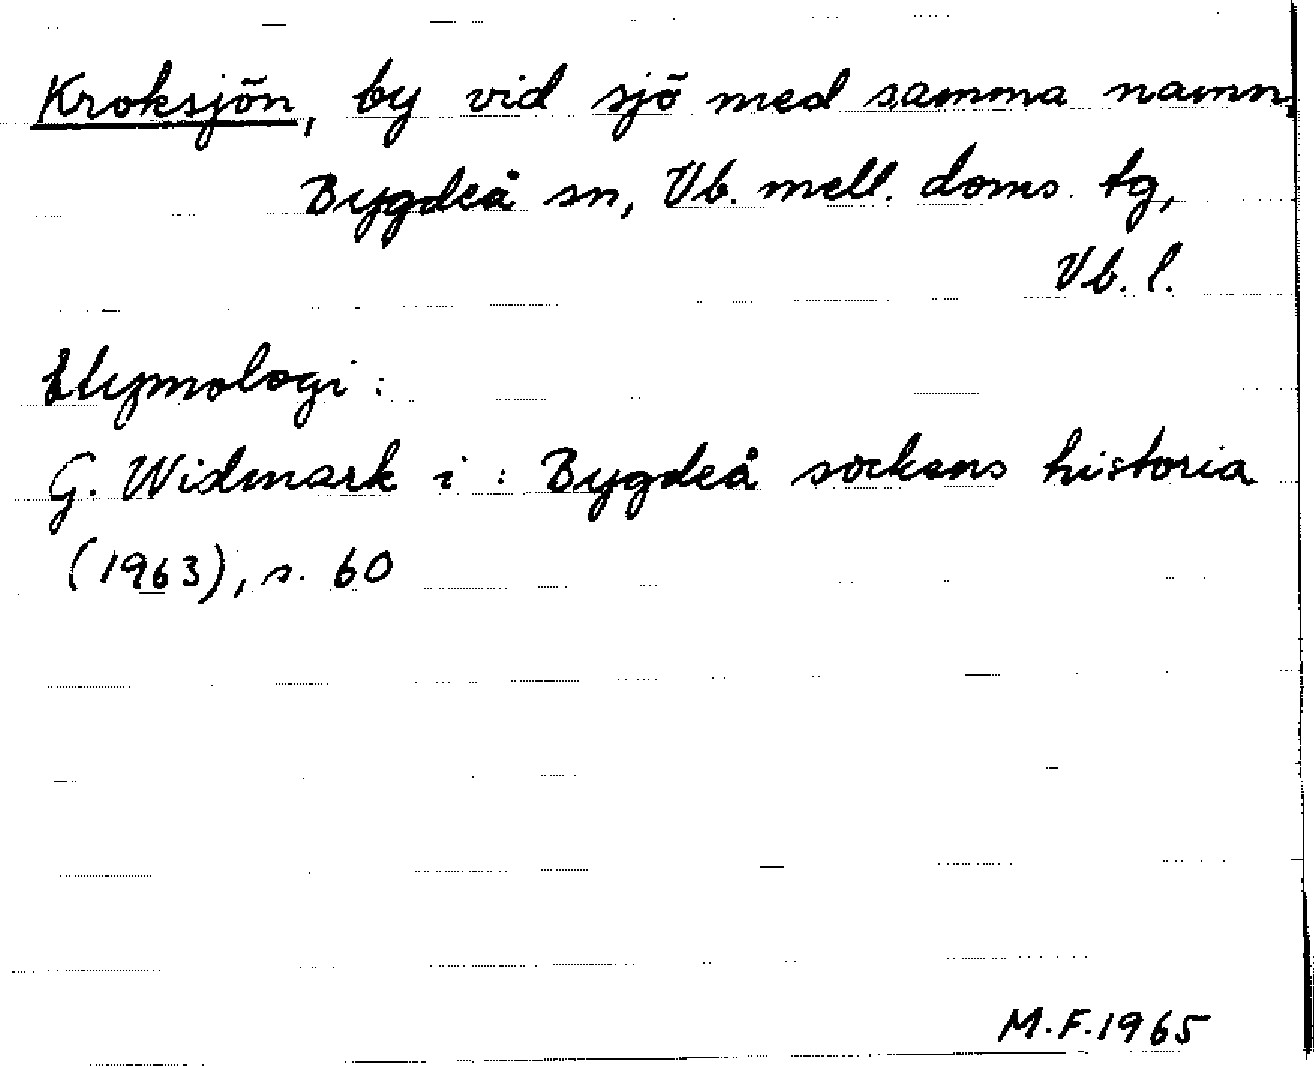 Kroksjön, by vid sjö med samma namn,
Bygdeå sn, Vb. mell. doms. tg,
Vb. l.
Etymologi:
G. Widmark i: Bygdeå sockens historia
(1963), s. 60
M.F.1965